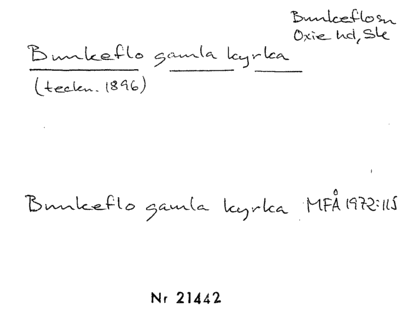 Bunkeflosn
Oxie hd, Sk
Bunkeflo gamla kyrka
(teckn. 1896)
Bunkeflo gamla kyrka MFÅ 1972:115
Nr 21442